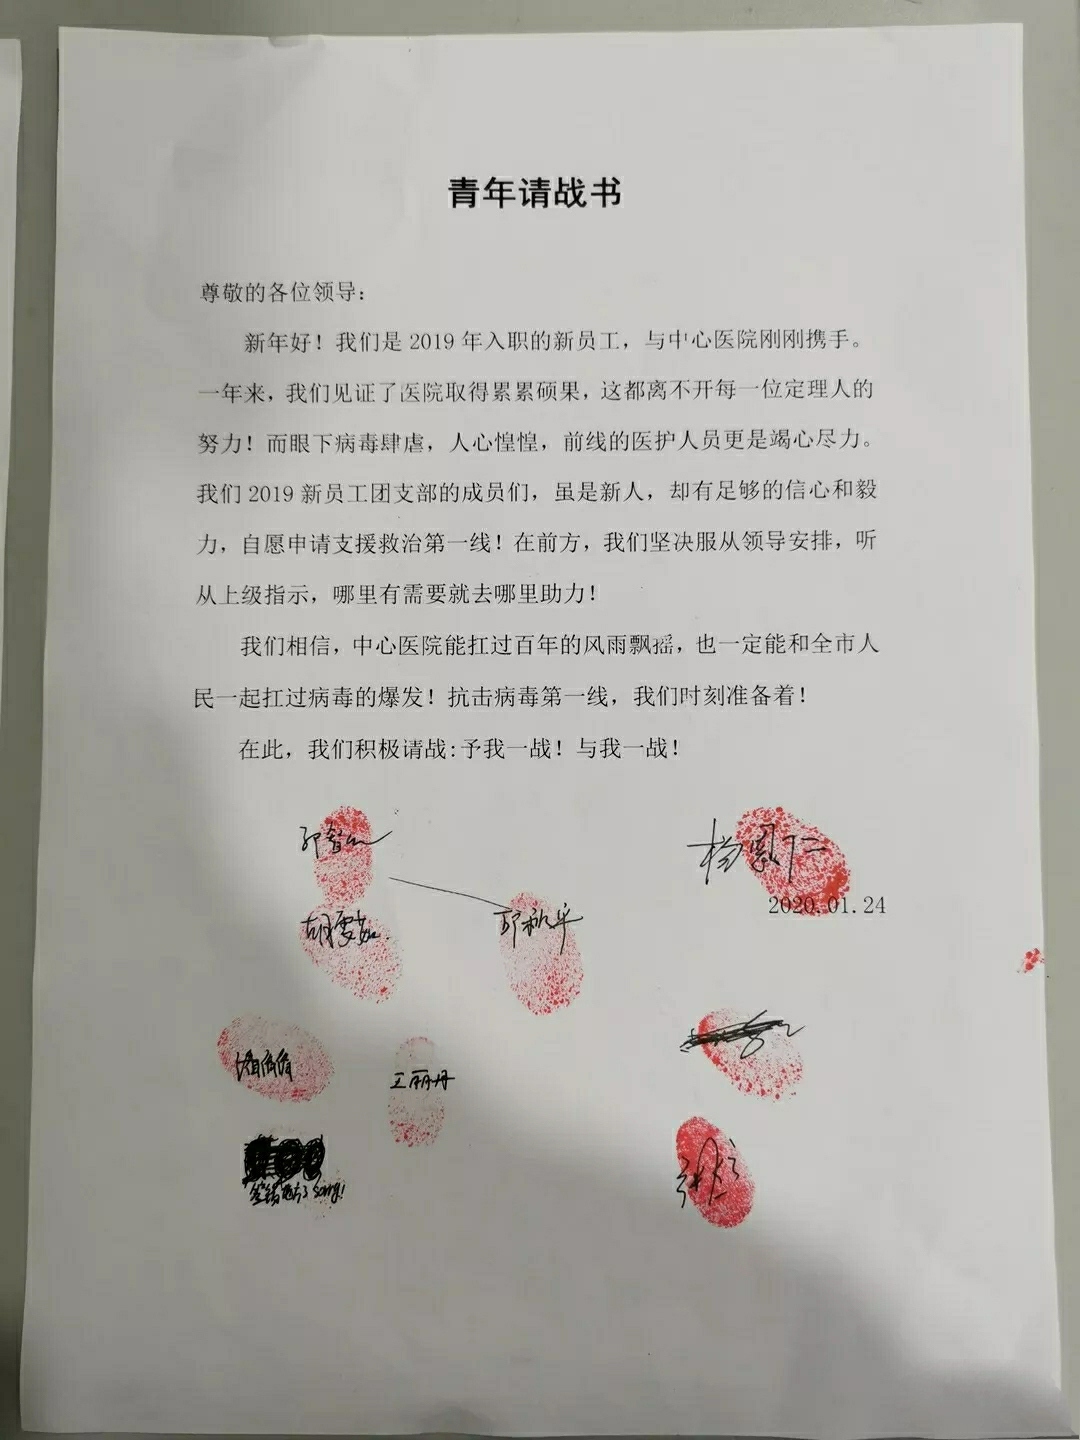 青年请战书
尊敬的各位领导：
新年好！我们是 2019 年入职的新员工，与中心医院刚刚携手。
一年来，我们见证了医院取得累累硕果，这都离不开每一位定理人的
努力！而眼下病毒肆虐，人心惶惶，前线的医护人员更是竭心尽力。
我们 2019 新员工团支部的成员们，虽是新人，却有足够的信心和毅
力，自愿申请支援救治第一线！在前方，我们坚决服从领导安排，听
从上级指示，哪里有需要就去哪里助力！
我们相信，中心医院能扛过百年的风雨飘摇，也一定能和全市人
民一起扛过病毒的爆发！抗击病毒第一线，我们时刻准备着！
在此，我们积极请战:予我一战！与我一战！
2020.01.24
王丽丹
sorry!